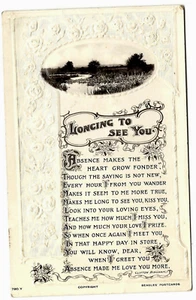 LONGING TO
SEE YOU
ABSENCE MAKES THE
HEART GROW FONDER,
THOUGH THE SAYING IS NOT NEW,
EVERY HOUR I FROM YOU WANDER
MAKES IT SEEM TO ME MORE TRUE,
MAKES ME LONG TO SEE YOU, KISS YOU,
LOOK INTO YOUR LOVING EYES,
TEACHES ME HOW MUCH I MISS YOU,
AND HOW MUCH YOUR LOVE I PRIZE.
WHEN ONCE AGAIN I MEET YOU,
IN THAT HAPPY DAY IN STORE,
YOU WILL KNOW, DEAR,
WHEN I GREET YOU
ABSENCE MADE ME LOVE YOU MORE.
COPYRIGHT